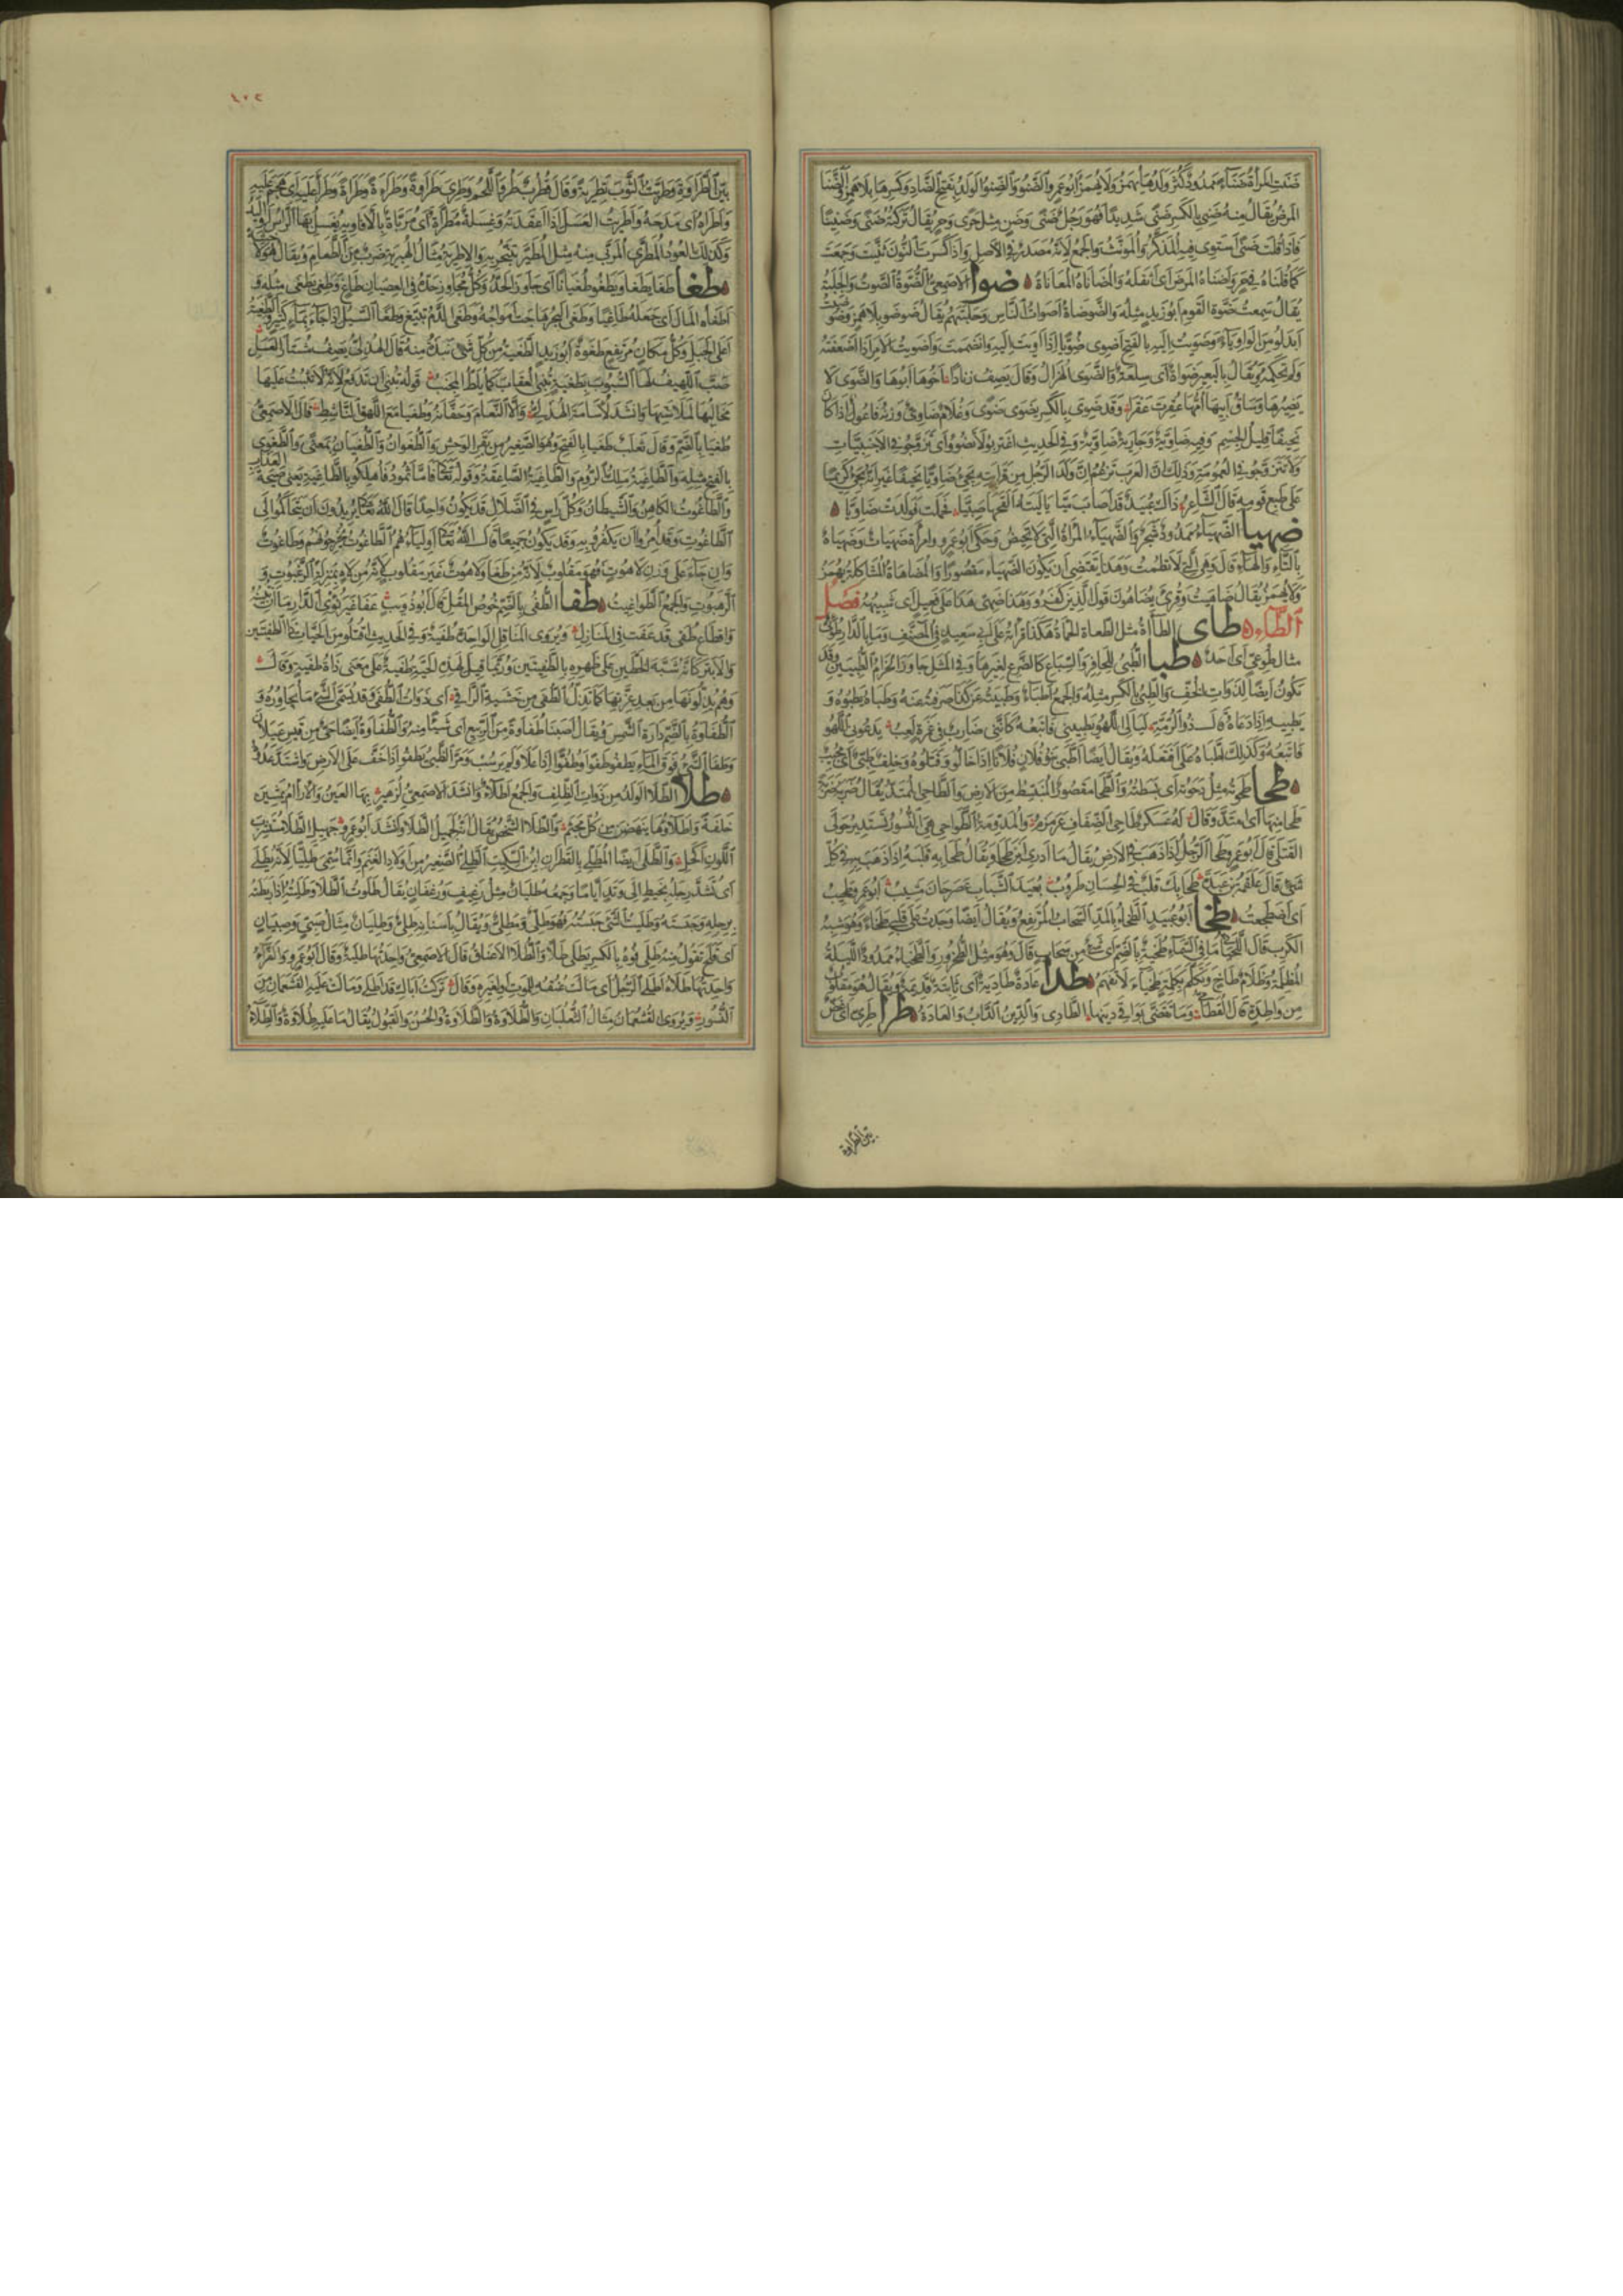 ضنت المرأة ضناء ممدود كثر ولدها يهمز ولا يهمز أبو عمرو الضنو والضنو الولد بفتح الضاد وكسرها بلا همز والضنا
المرض يقال منه ضني بالكسر ضنى شديدا فهو رجل ضنى وضن مثل حرى وحر يقال تركته ضنى وضنيا
فاذا قلت ضنى استوى فيه المذكر والمونث والجمع لأنه مصدر في الأصل واذا كسرت النون ثنيت وجمعت
كما قلناه في حر وأضناه المرض اى أثقله والمضاناة المعاناة ضوا الأصمعي الضوة الصوت والجلبة
يقال سمعت ضوة القوم أبو زيد مثله والضوضاة أصوات الناس وجلبتهم يقال ضوضو بلا همز وضوضيت
أبدلو من الواو ياء وضويت اليه بالفتح أضوى ضويا اذا أويت اليه وانضممت وأضويت الامر اذا أضعفته
ولم تحكمه ويقال بالبعير ضواة أى سلعة والضوى الهزال وقال يصف زندا أخوها أبوها والضوى لا
يضيرها وساق أبيها أمها عقرت عقرا وقد ضوى بالكسر يضوى ضوى وغلام ضاوى وزنه فاعول اذا كان
نحيفا قليل الجسم وفيه ضاوية وجارية ضاوية وفي الحديث اغتربو لا تضوو أى تزوجو في الأجنبيات
ولا تتزوجو في العمومة وذلك ان العرب تزعم ان ولد الرجل من قرابته يجئ ضاويا نحيفا غير انه يجئ كريما
على طبع قومه قال الشاعر ذاك عبيد قد أصاب ميا ياليته ألقحها صبيا فحملت فولدت ضاويا
ضهيا الضهياء ممدود شجر والضهياء المرأة التي لا تحيض وحكى أبو عمرو وامرأة ضهياة وضهياه
بالتاء والهاء قال وهي التي لا تطمث وهذا يقتضي ان يكون الضهياء مقصورا والمضاهاة المشاكلة يهمز
ولا يهمز يقال ضاهيت وقرئ يضاهون قول الذين كفرو وهذا ضهي هذا على فعيل أى شبيهه فصل
الطاء طاى الطاأة مثل الطعاة الحماة هكذا قرأته على أبي سعيد في المصنف وما بالدار طوئي
مثال طوعي أى أحد طبا الطبي للحافر والسباع كالضرع لغيرها وفي المثل جاوز الحزام الطبيين وقد
يكون أيضا لذوات الخف والطبي بالكسر مثله والجمع أطباء وطبيته عن كذا صرفته عنه وطباه يطبوه و
يطبيه اذا دعاه قال ذو الرمة ليالي اللهو يطبيني فأتبعه كأنني ضارب في غمرة لعب يدعوني اللهو
فأتبعه وكذلك اطباه على افتعله ويقال أيضا اطبى بنو فلان فلانا اذا خالوه وقتلوه وخلف طبي أى مجيب
طحا طحوته مثل دحوته أى بسطته والطحا مقصور المنبسط من الارض والطاحي الممتد يقال ضربه ضربة
طحا منها أى امتد وقال له عسكر طاحي الضفاف عرمرم والمدومة الطواحي هي النسور تستدير حول
القتلى قال أبو عمرو طحا الرجل اذا ذهب في الارض يقال ما أدرى أين طحا ويقال طحا به قلبه اذا ذهب به في كل
شئ قال علقمة بن عبدة طحا بك قلب في الحسان طروب بعيد الشباب عصر حان مشيب أبو عمرو طحيت
أى اضطجعت طخا أبو عبيد الطخاء بالمد السحاب المرتفع ويقال أيضا وجدت على قلبي طخاء وهو شبه
الكرب قال اللحياني ما في السماء طخية بالضم أى شئ من سحاب قال وهو مثل الطحرور والطخياء ممدود الليلة
المظلمة وظلام طاخ وتكلم بكلمة طخياء لا تفهم طدا عادة طادية أى ثابتة قديمة ويقال هو مقلوب
من واطدة قال القطامي وما تقضى بواقي دينها الطادى والدين الداب والعادة طرا طري أى غض
بين الطراوة
٢٠١
بين الطراوة وطريت الثوب تطرية وقال قطرب طرو اللحم وطري طراوة وطراءة وطراة وطرأ عليه أى هجم عليه
وأطراه أى مدحه وأطريت العسل اذا أعقدته وغسلة مطراة أى مرباة بالأفاويه يغسل بها الرأس أو اليد
وكذلك العود المطرى المربى منه مثل المطير يتبخر به والاطرية مثال الهبرية ضرب من الطعام ويقال هو لاكشه
طغا طغا يطغى ويطغو طغيانا أى جاوز الحد وكل مجاوز حده في العصيان طاغ وطغى يطغى مثله و
أطغاه المال أى جعله طاغيا وطغى البحر هاجت أمواجه وطغى الدم تبيغ وطغا السيل اذا جاء بماء كثير والطغية
أعلى الجبل وكل مكان مرتفع طغوة أبو زيد الطغية من كل شئ نبذة منه قال الهذلي يصف مشتار العسل
صب اللهيف لها السبوب بطغية تنبي العقاب كما يلط المجنب قوله تنبي أى تدفع لأنه لا تثبت عليها
مخالبها لملاستها وأنشد لأسامة الهذلي والا النعام وحفانه وطغيا مع اللهق الناشط قال الأصمعي
طغيا بالضم وقال ثعلب طغيا بالفتح وهو الصغير من بقر الوحش والطغوان والطغيان بمعنى والطغوى
بالفتح مثله والطاغية ملك الروم والطاغية الصاعقة وقوله تعالى فأما ثمود فأهلكو بالطاغية يعنى صيحة العذاب
والطاغوت الكاهن والشيطان وكل رأس في الضلال قد يكون واحدا قال الله تعالى يريدون أن يتحاكمو الى
الطاغوت وقد أمروا أن يكفرو به وقد يكون جميعا قال الله تعالى أولياؤهم الطاغوت يخرجونهم وطاغوت
وان جاء على وزن لاهوت فهو مقلوب لأنه من طغا ولاهوت غير مقلوب لأنه من لاه بمنزلة الرغبوت و
الرهبوت والجمع الطواغيت طفا الطفي بالضم خوص المقل قال أبو ذويب عفا غير نؤى الدار ما ان تبينه
وأقطاع طفى قد عفت في المنازل ويروى المناقل الواحدة طفية وفي الحديث اقتلو من الحيات ذا الطفيتين
والأبتر كأنه شبه الخطين على ظهره بالطفيتين وربما قيل لهذه الحية طفية على معنى ذات طفية وقال
وهم يذلونها من بعد عزتها كما تذل الطفى من خشية الراقي أى ذوات الطفى وقد يسمى الشئ بما يجاوره و
الطفاوة بالضم دارة الشمس ويقال أصبنا طفاوة من الربيع أى شيئا منه والطفاوة أيضا حي من قيس عيلان
وطفا الشئ فوق الماء يطفو طفوا وطفوا اذا علا ولم يرسب ومر الظبي يطفو اذا خف على الارض واشتد عدوه
طلا الطلا الولد من ذوات الظلف والجمع أطلاء وأنشد الأصمعي لزهير بها العين والآرام يمشين
خلفة وأطلاؤها ينهضن من كل مجثم والطلا الشخص يقال انه لجميل الطلا وأنشد أبو عمرو جميل الطلا مستشرب
اللون أكحل والطلى أيضا المطلي بالقطران ابن السكيت الطلي الصغير من أولاد الغنم وانما سمي طليا لأنه يطلى
أى تشد رجله بخيط الى وتد أياما وجمعه طليان مثل رغيف ورغفان يقال طلوت الطلا وطليته اذا ربطته
برجله وحبسته وطليت الشئ حبسته فهو طلي ومطلي ويقال بأسنانه طلي وطليان مثال صبي وصبيان
أى قلح تقول منه طلي فوه بالكسر يطلى طلا والطلا الاعناق قال الأصمعي واحدتها طلية وقال أبو عمرو والفراء
واحدتها طلاة أطلى الرجل أى مالت عنقه للموت أو لغيره وقال تركت أباك قد أطلى ومالت عليه القشعمان من
النسور ويروى القشعمان مثال الثعلبان والطلاوة والطلاوة الحسن والقبول يقال ما عليه طلاوة والطلاء